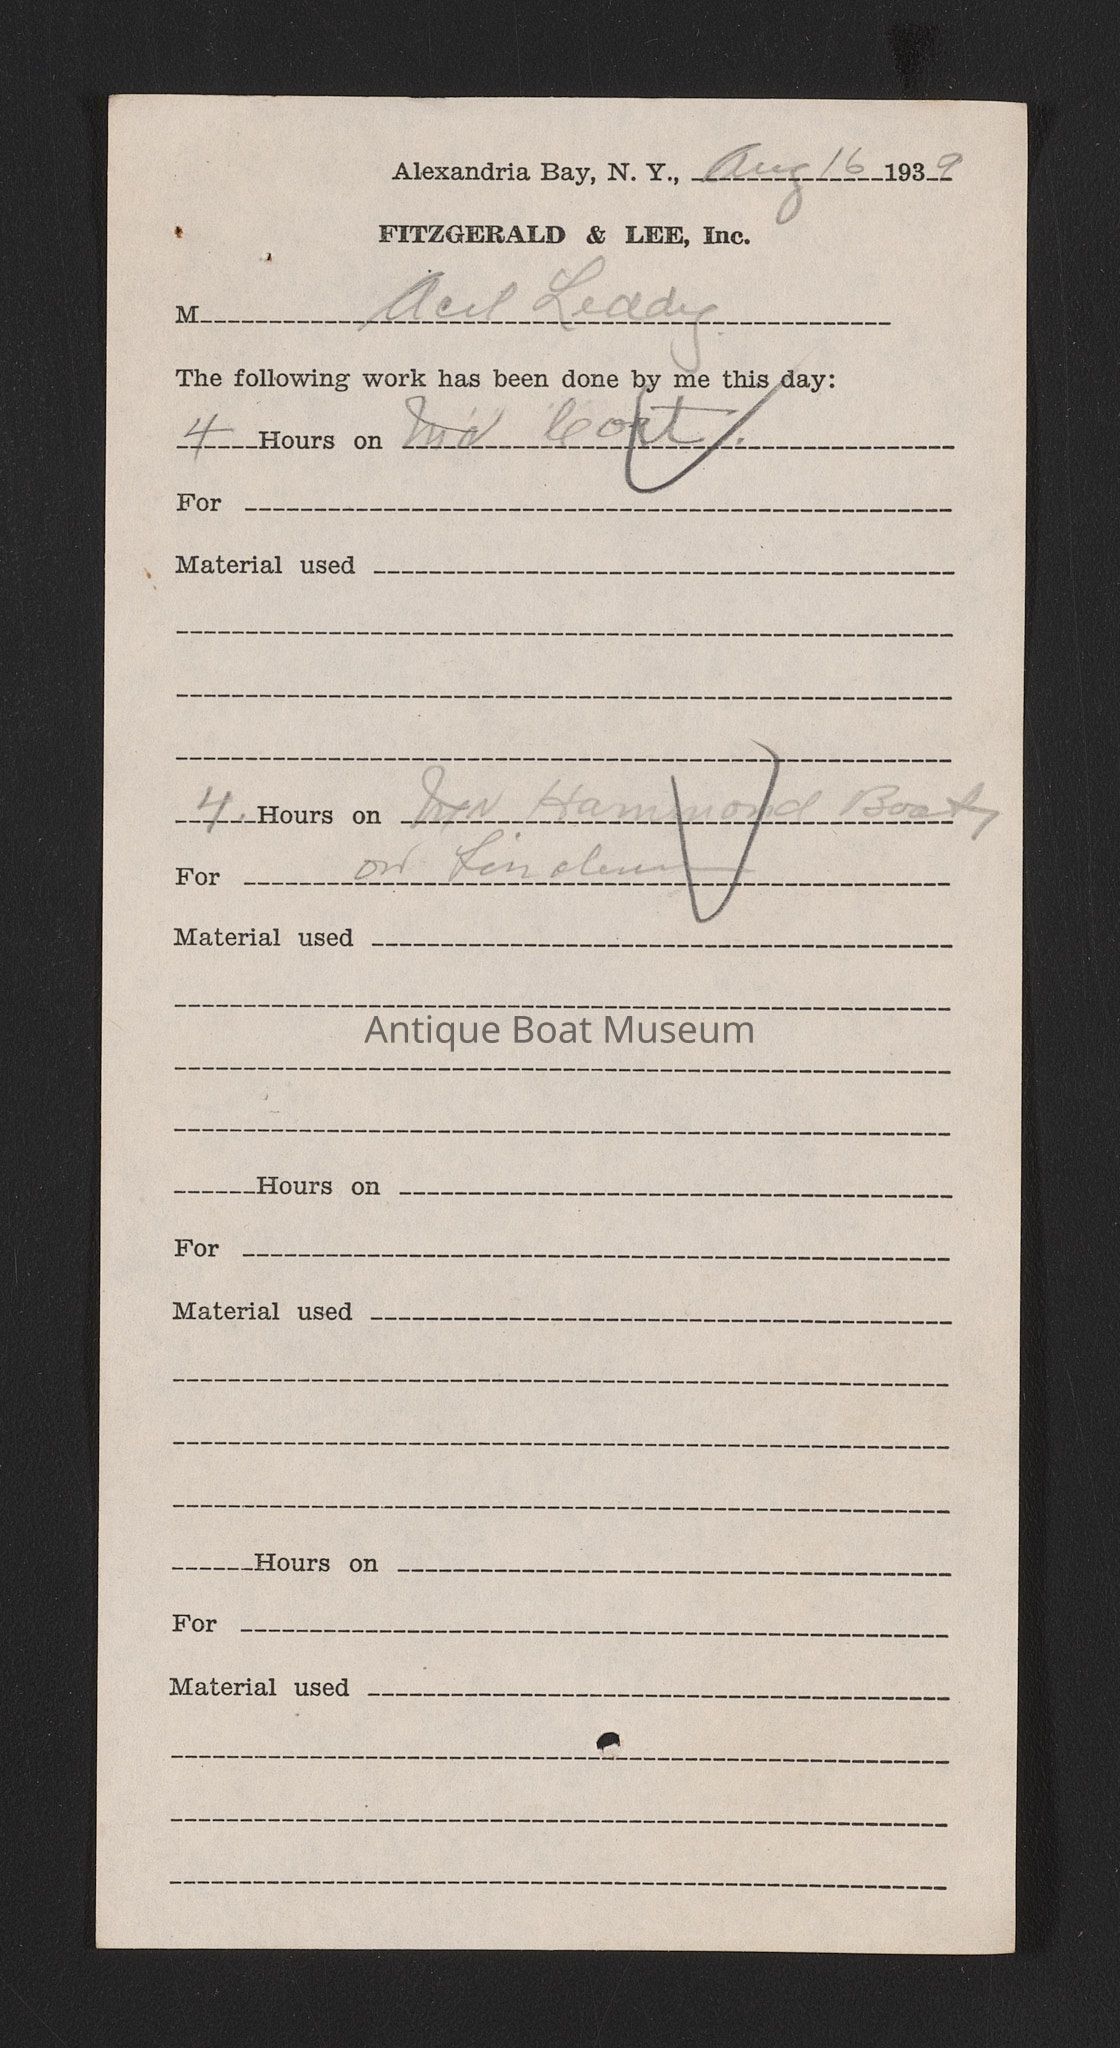 Alexandria Bay, N. Y., Aug 16 1939
FITZGERALD & LEE, Inc.
M Leddy
The following work has been done by me this day:
4 Hours on
For
Material used
4. Hours on Hammond Boat
For on Linoleum
Material used
Antique Boat Museum
Hours on
For
Material used
Hours on
For
Material used